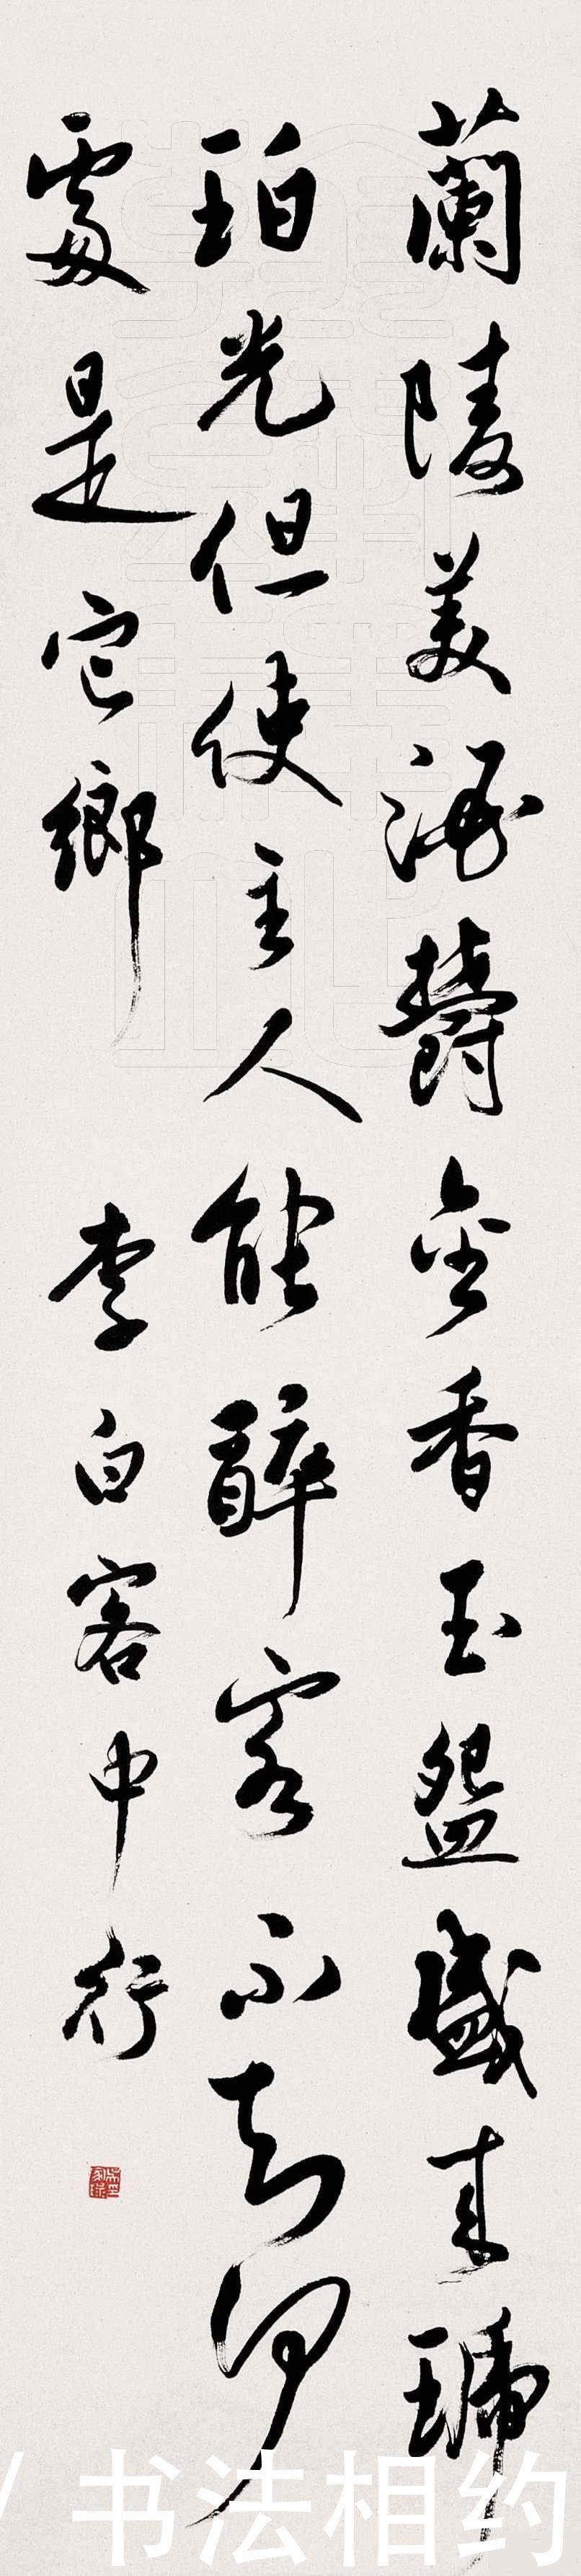 蘭陵美酒鬱金香玉盌盛來琥
珀光但使主人能醉客不知何
處是它鄉 李白客中行
/ 书法相约